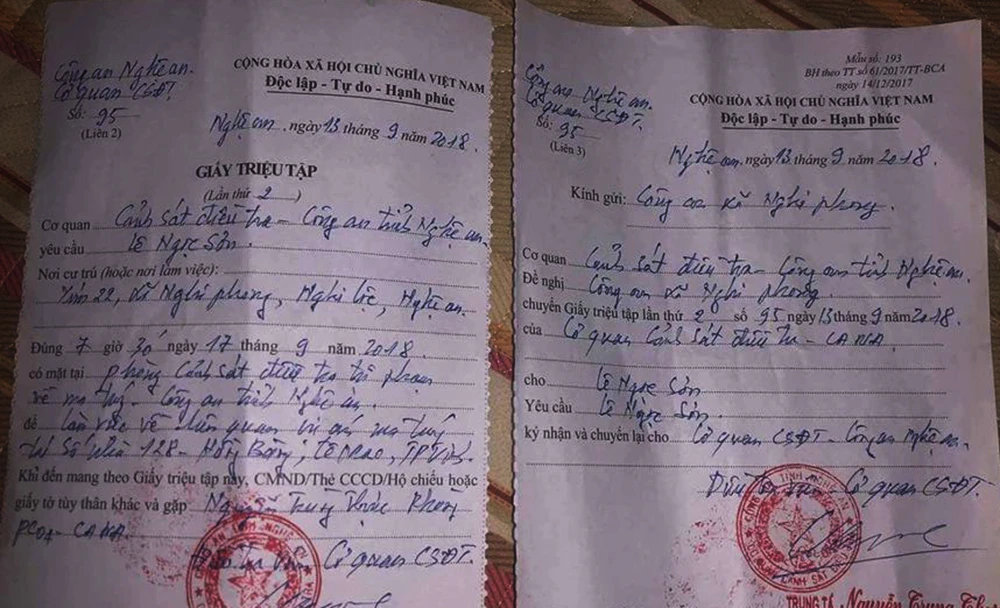 Công an Nghệ an.
Cơ quan CSĐT.
Số: 95
(Liên 2)
CỘNG HÒA XÃ HỘI CHỦ NGHĨA VIỆT NAM
Độc lập - Tự do - Hạnh phúc
Nghệ an, ngày 13 tháng 9 năm 2018.
GIẤY TRIỆU TẬP
(Lần thứ 2)
Cơ quan Cảnh sát điều tra - Công an tỉnh Nghệ an.
yêu cầu Lê Ngọc Sơn.
Nơi cư trú (hoặc nơi làm việc):
Xóm 22, xã Nghi phong, Nghi Lộc, Nghệ an.
Đúng 7 giờ 30 ngày 17 tháng 9 năm 2018.
có mặt tại phòng Cảnh sát điều tra tội phạm
về ma túy - Công an tỉnh Nghệ an.
để làm việc về liên quan vụ án ma túy
tại Số nhà 128 - Hồng Bàng, TP Vinh.
Khi đến mang theo Giấy triệu tập này, CMND/Thẻ CCCD/Hộ chiếu hoặc
giấy tờ tùy thân khác và gặp Nguyễn Trung Phòng
PC04 - CANA.
Điều tra viên Cơ quan CSĐT.
Mẫu số: 193
BH theo TT số 61/2017/TT-BCA
ngày 14/12/2017
Công an Nghệ an.
Cơ quan CSĐT.
Số: 95
(Liên 3)
CỘNG HÒA XÃ HỘI CHỦ NGHĨA VIỆT NAM
Độc lập - Tự do - Hạnh phúc
Nghệ an, ngày 13 tháng 9 năm 2018.
Kính gửi: Công an xã Nghi phong.
Cơ quan Cảnh sát điều tra - Công an tỉnh Nghệ an.
Đề nghị Công an xã Nghi phong.
chuyển Giấy triệu tập lần thứ 2 số 95 ngày 13 tháng 9 năm 2018.
của Cơ quan Cảnh sát điều tra - CANA.
cho Lê Ngọc Sơn
Yêu cầu Lê Ngọc Sơn.
ký nhận và chuyển lại cho Cơ quan CSĐT - Công an Nghệ an.
Điều tra viên - Cơ quan CSĐT.
TRUNG TÁ Nguyễn Trung